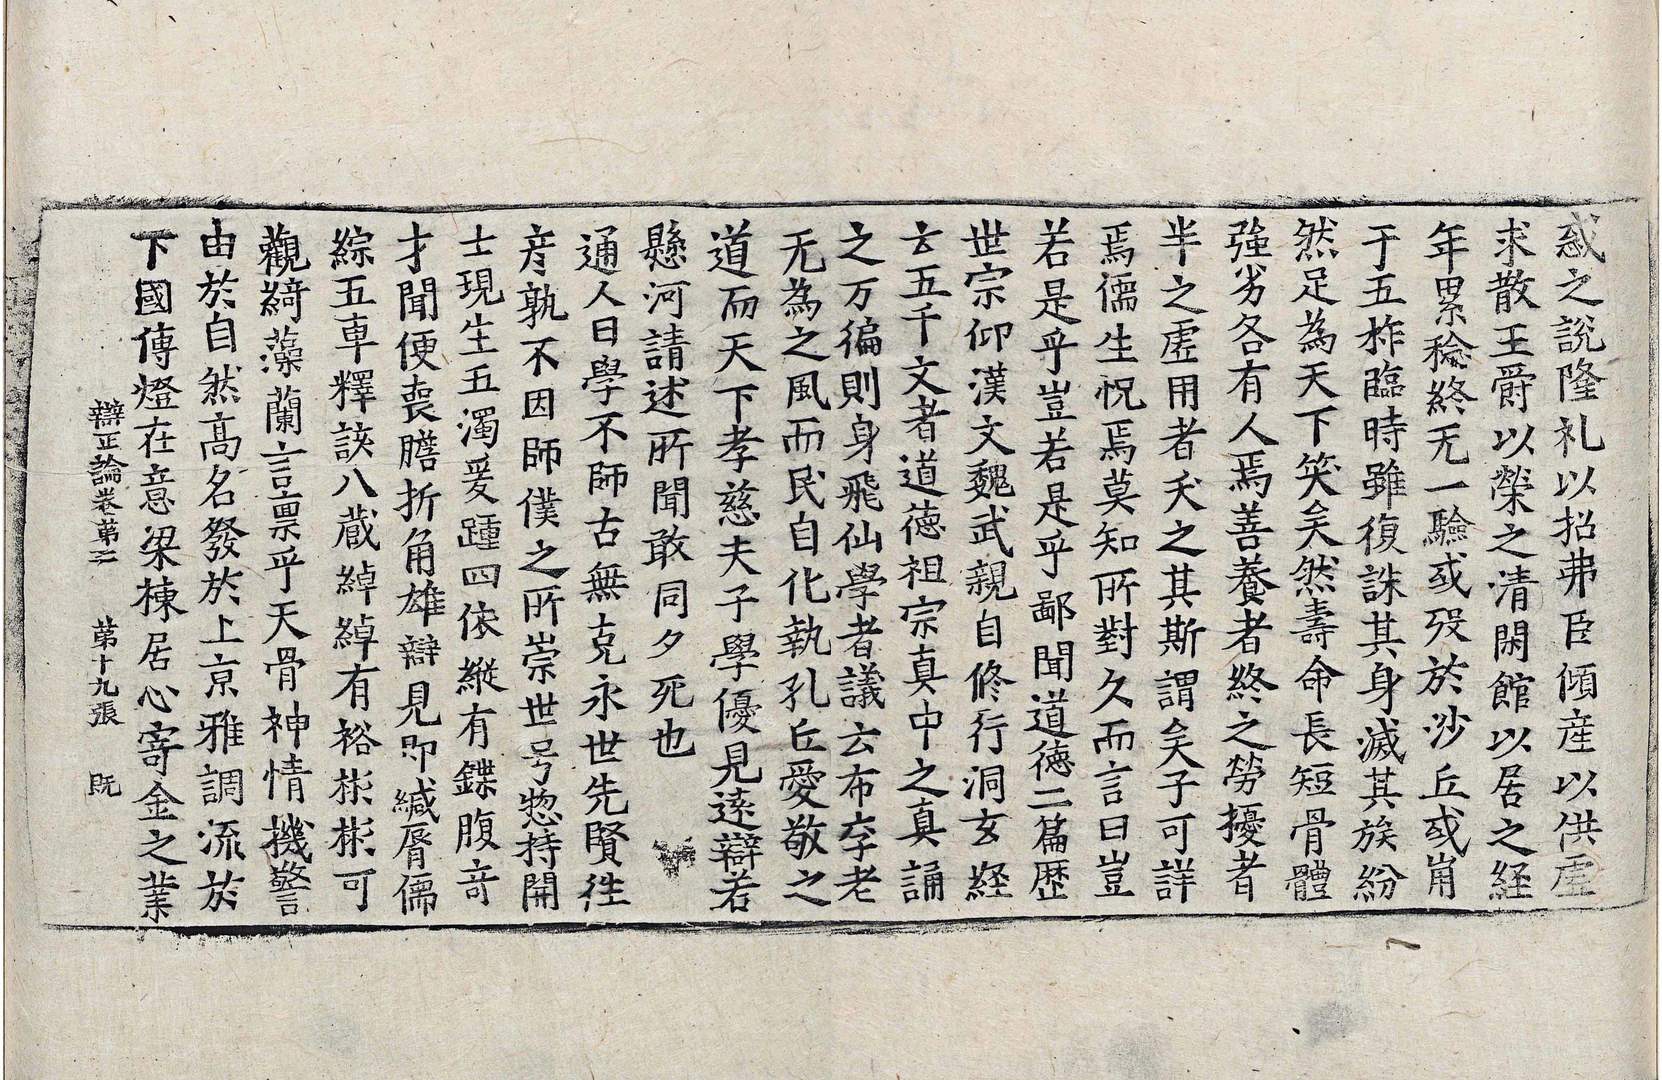 惑之說隆礼以招弗臣傾産以供虛
求散王爵以榮之清閑館以居之経
年累稔終无一驗或歿於沙丘或崩
于五柞臨時雖復誅其身滅其族紛
然足為天下笑矣然壽命長短骨體
強劣各有人焉善養者終之勞擾者
半之虛用者夭之其斯謂矣子可詳
焉儒生怳焉莫知所對久而言曰豈
若是乎豈若是乎鄙聞道德二篇歷
世宗仰漢文魏武親自修行洞玄経
云五千文者道德祖宗真中之真誦
之万徧則身飛仙學者議云布李老
无為之風而民自化執孔丘愛敬之
道而天下孝慈夫子學優見遠辯若
懸河請述所聞敢同夕死也
通人曰學不師古無克永世先賢徃
彦孰不因師僕之所崇世号惣持開
士現生五濁爰踵四依縱有鍱腹竒
才聞便喪膽折角雄辯見即緘脣儒
綜五車釋該八蔵綽綽有裕彬彬可
觀綺藻蘭言禀乎天骨神情機警
由於自然高名發於上京雅調流於
下國傳燈在意梁棟居心寄金之業
辯正論卷第二 第十九張 旣